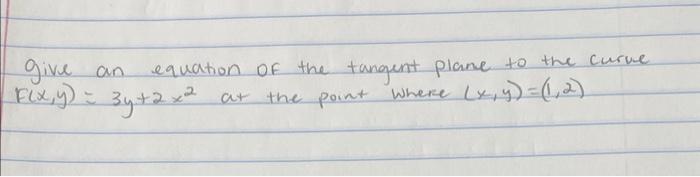 give an equation of the tangent plane to the curve
F(x,y) = 3y+2x² at the point where (x,y)=(1,2)